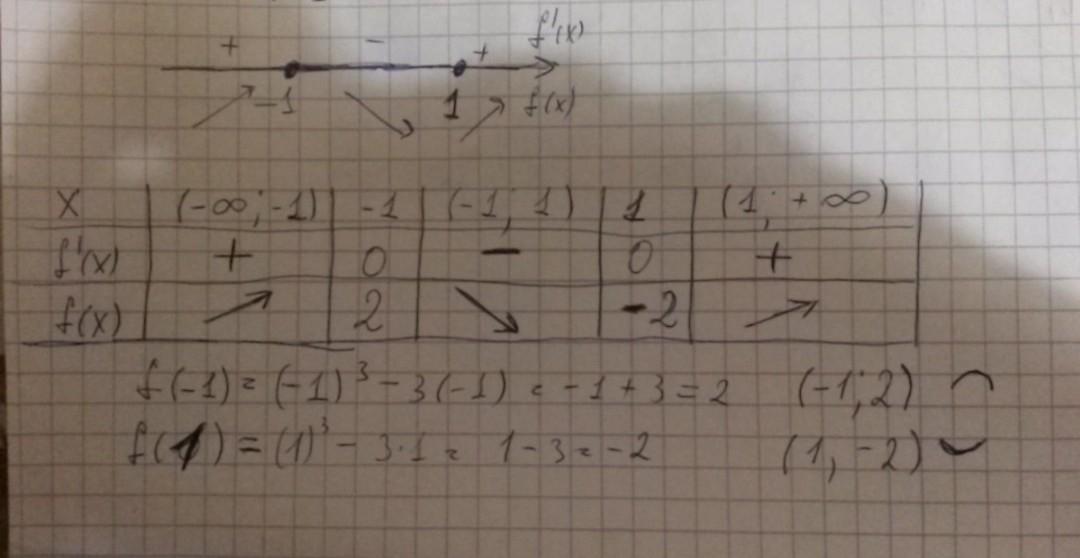 + − + f'(x)
-1 1 f(x)
x (-∞; -1) -1 (-1; 1) 1 (1; +∞)
f'(x) + 0 − 0 +
f(x) ↗ 2 ↘ -2 ↗
f(-1) = (-1)³ - 3(-1) = -1 + 3 = 2 (-1; 2)
f(1) = (1)³ - 3·1 = 1 - 3 = -2 (1, -2)